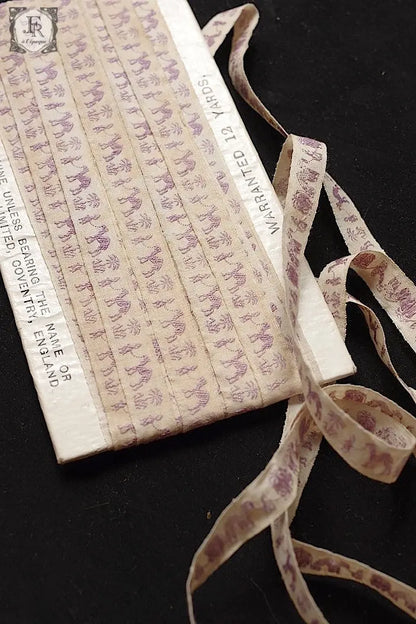 FR
à l'Époque
WARRANTED 12 YARDS,
INE UNLESS BEARING THE NAME OR
LIMITED, COVENTRY, ENGLAND